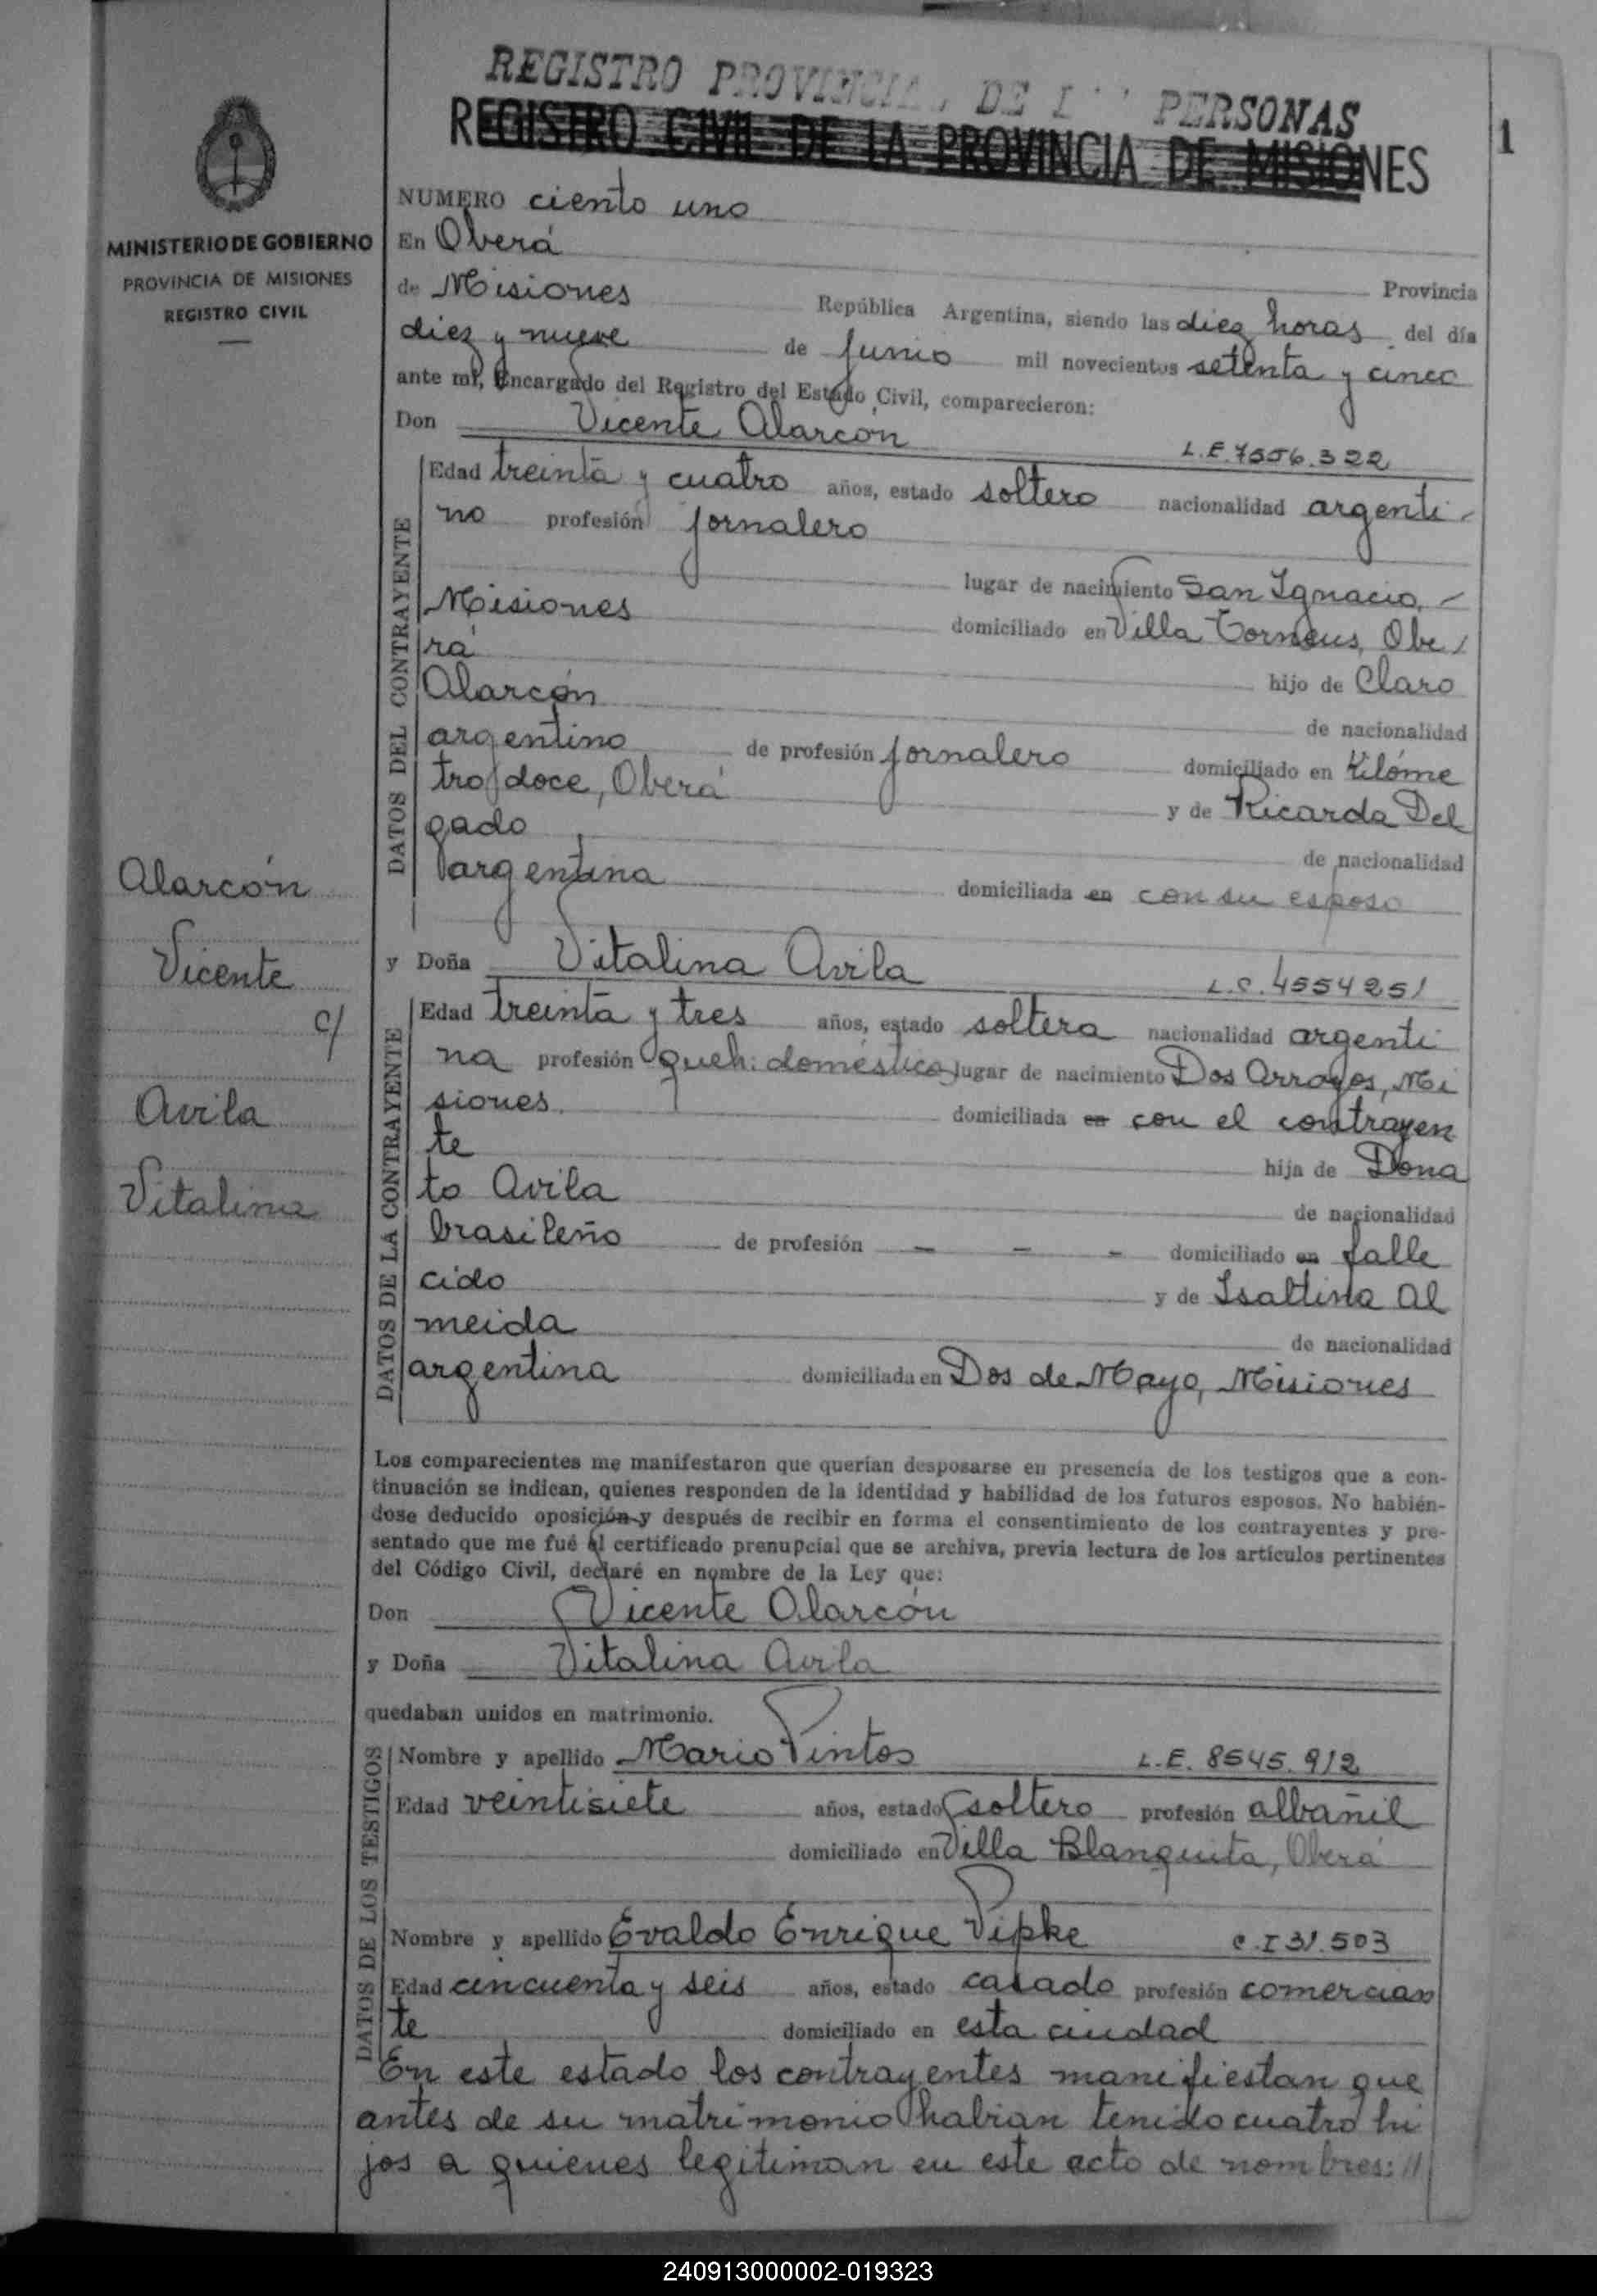 REGISTRO PROVINCIAL DE L PERSONAS
REGISTRO CIVIL DE LA PROVINCIA DE MISIONES
1
MINISTERIO DE GOBIERNO
PROVINCIA DE MISIONES
REGISTRO CIVIL
Alarcón
Vicente
c/
Avila
Vitalina
NUMERO ciento uno
En Oberá
Provincia
de Misiones República Argentina, siendo las diez horas del día
diez y nueve de junio mil novecientos setenta y cinco
ante mí, Encargado del Registro del Estado Civil, comparecieron:
Don Vicente Alarcón L.E. 7556.322
DATOS DEL CONTRAYENTE
Edad treinta y cuatro años, estado soltero nacionalidad argenti-
no profesión jornalero
lugar de nacimiento San Ignacio,
Misiones domiciliado en Villa Torneus, Obe
rá hijo de Claro
Alarcón de nacionalidad
argentino de profesión jornalero domiciliado en Kilóme
tro doce, Oberá y de Ricarda Del
gado de nacionalidad
argentina domiciliada en con su esposo
y Doña Vitalina Avila L.C. 4554251
DATOS DE LA CONTRAYENTE
Edad treinta y tres años, estado soltera nacionalidad argenti
na profesión queh. domésticos lugar de nacimiento Dos Arroyos, Mi
siones domiciliada en con el contrayen
te hija de Dona
to Avila de nacionalidad
brasileño de profesión - - - domiciliado en falle
cido y de Isaltina Al
meida de nacionalidad
argentina domiciliada en Dos de Mayo, Misiones
Los comparecientes me manifestaron que querían desposarse en presencia de los testigos que a con-
tinuación se indican, quienes responden de la identidad y habilidad de los futuros esposos. No habién-
dose deducido oposición y después de recibir en forma el consentimiento de los contrayentes y pre-
sentado que me fué el certificado prenupcial que se archiva, previa lectura de los artículos pertinentes
del Código Civil, declaré en nombre de la Ley que:
Don Vicente Alarcón
y Doña Vitalina Avila
quedaban unidos en matrimonio.
DATOS DE LOS TESTIGOS
Nombre y apellido Mario Pintos L.E. 8545.912
Edad veintisiete años, estado soltero profesión albañil
domiciliado en Villa Blanquita, Oberá
Nombre y apellido Evaldo Enrique Pipke C.I 31.503
Edad cincuenta y seis años, estado casado profesión comercian
te domiciliado en esta ciudad
En este estado los contrayentes manifiestan que
antes de su matrimonio habian tenido cuatro hi
jos a quienes legitiman en este acto de nombres: //
240913000002-019323